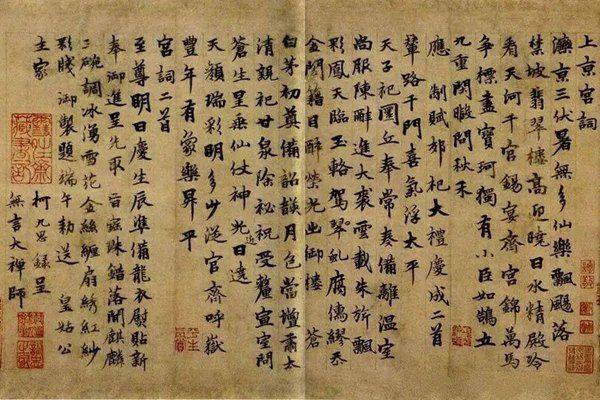 上京宮詞
灤京三伏暑無多仙樂飄颻落
禁坡翡翠樓高迎曉日水精殿冷
看天河千官錫宴齊宮錦萬馬
争標盡寶珂獨有小臣如鵠立
九重閒暇問秋禾
應制賦郊祀大禮慶成二首
輦路千門喜氣浮太平
天子祀圜丘奉常奏備離温室
尚服陳辭進大裘雲載朱旂飄
彩鳳天臨玉輅駕翠虬腐儒繆忝
金閨籍目醉榮光出御樓 蒼
白茅初奠備韶韺月色當壇肅太
清親祀甘泉除祕祝受釐宣室問
蒼生星垂仙仗神光近日遶
天顏瑞彩明多少從官齋呼嶽
豐年有象樂昇平
宮詞二首
至尊明日慶生辰準備龍衣熨貼新
奉御進呈先取 旨寇珠錯落間麒麟
三碗調冰湧雪花金絲纏扇綉紅紗
彩牋御製題端午勅送 皇姑公
主家
柯九思錄呈
無言大禪師